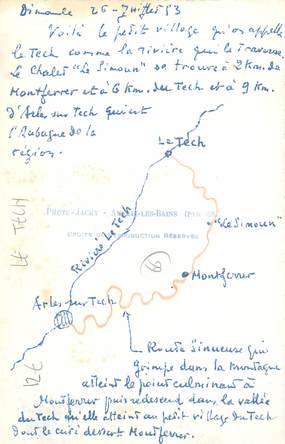 Dimanche 26 - Juillet 53
Voilà le petit village qu'on appelle
Le Tech comme la rivière qui le traverse.
Le Chalet "Le Simoun" se trouve à 2 Km. de
Montferrer et à 6 Km. du Tech et à 9 Km.
d'Arles sur Tech qui est
l'Aubagne de la
région.
Le Tech
PHOTO-JACKY - LES-BAINS
DROITS DE REPRODUCTION RÉSERVÉS
Rivière Le Tech
"Le Simoun"
LE TECH
66
Montferrer
Arles sur Tech
12€
Route Sinueuse qui
grimpe dans la montagne
atteint le point culminant à
Montferrer puis redescend dans la vallée
du Tech qu'elle atteint au petit village du Tech
dont le curé dessert Montferrer.